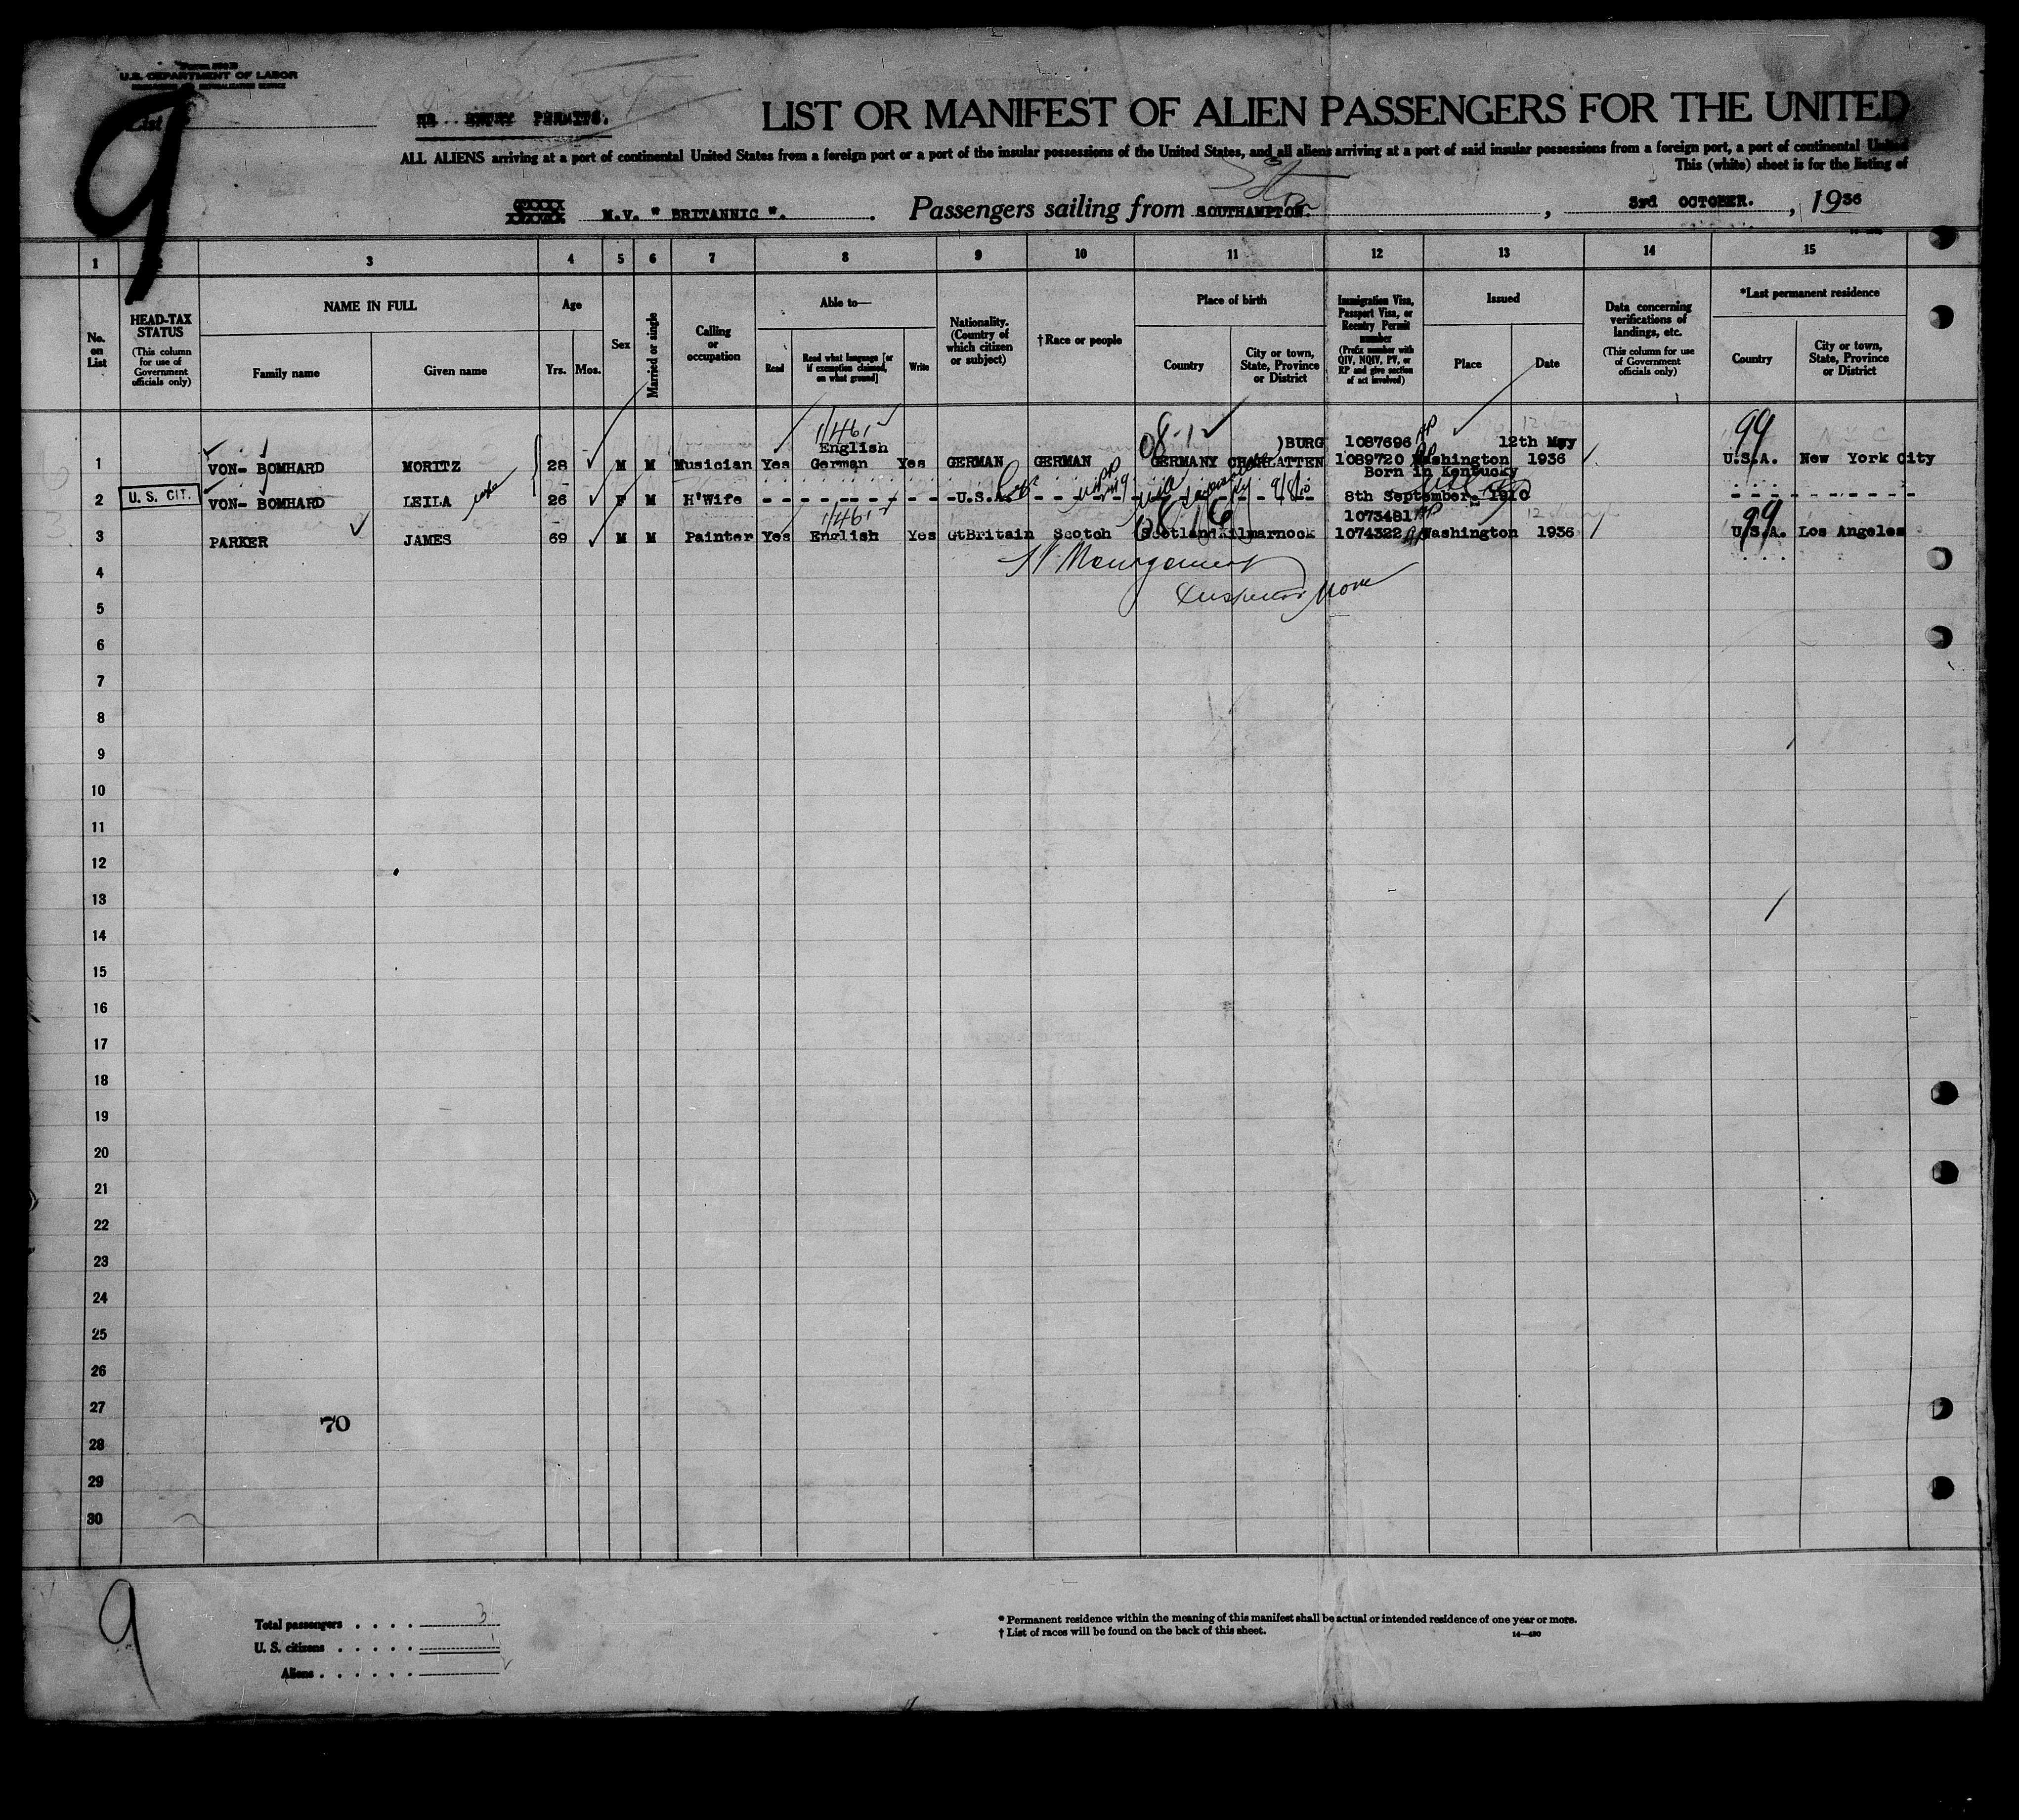 Form 500 B
U.S. DEPARTMENT OF LABOR
IMMIGRATION AND NATURALIZATION SERVICE
9
List
RE ENTRY PERMITS.
LIST OR MANIFEST OF ALIEN PASSENGERS FOR THE UNITED
ALL ALIENS arriving at a port of continental United States from a foreign port or a port of the insular possessions of the United States, and all aliens arriving at a port of said insular possessions from a foreign port, a port of continental United
This (white) sheet is for the listing of
M.V. " BRITANNIC ". Passengers sailing from SOUTHAMPTON. , 3rd OCTOBER. , 1936
1 3 4 5 6 7 8 9 10 11 12 13 14 15
No. on List
HEAD-TAX STATUS (This column for use of Government officials only)
NAME IN FULL
Family name
Given name
Age
Yrs. Mos.
Sex
Married or single
Calling or occupation
Able to—
Read
Read what language [or if exemption claimed, on what ground]
Write
Nationality. (Country of which citizen or subject)
†Race or people
Place of birth
Country
City or town, State, Province or District
Immigration Visa, Passport Visa, or Reentry Permit number (Prefix number with QIV, NQIV, PV, or RP and give section of act involved)
Issued
Place
Date
Data concerning verifications of landings, etc. (This column for use of Government officials only)
*Last permanent residence
Country
City or town, State, Province or District
1/461 08-12 99
English )BURG 1087696 RP 12th May
1 VON- BOMHARD MORITZ 28 M M Musician Yes German Yes GERMAN GERMAN GERMANY CHARLATTEN 1089720 Washington 1936 U.S.A. New York City
Born in Kentucky
2 U. S. CIT. VON- BOMHARD LEILA wife 26 F M H'Wife U.S.A. 8th September 1910
1/461 08 16 1073481 RP 99
3 PARKER JAMES 69 M M Painter Yes English Yes GtBritain Scotch Scotland Kilmarnock 1074322 Washington 1936 U.S.A. Los Angeles
4
Inspector
5
6
7
8
9
10
11
12
13
14
15
16
17
18
19
20
21
22
23
24
25
26
27
70
28
29
30
9
Total passengers . . . . 3
U. S. citizens . . . . . 1
Aliens . . . . . .
* Permanent residence within the meaning of this manifest shall be actual or intended residence of one year or more.
† List of races will be found on the back of this sheet.
14—480